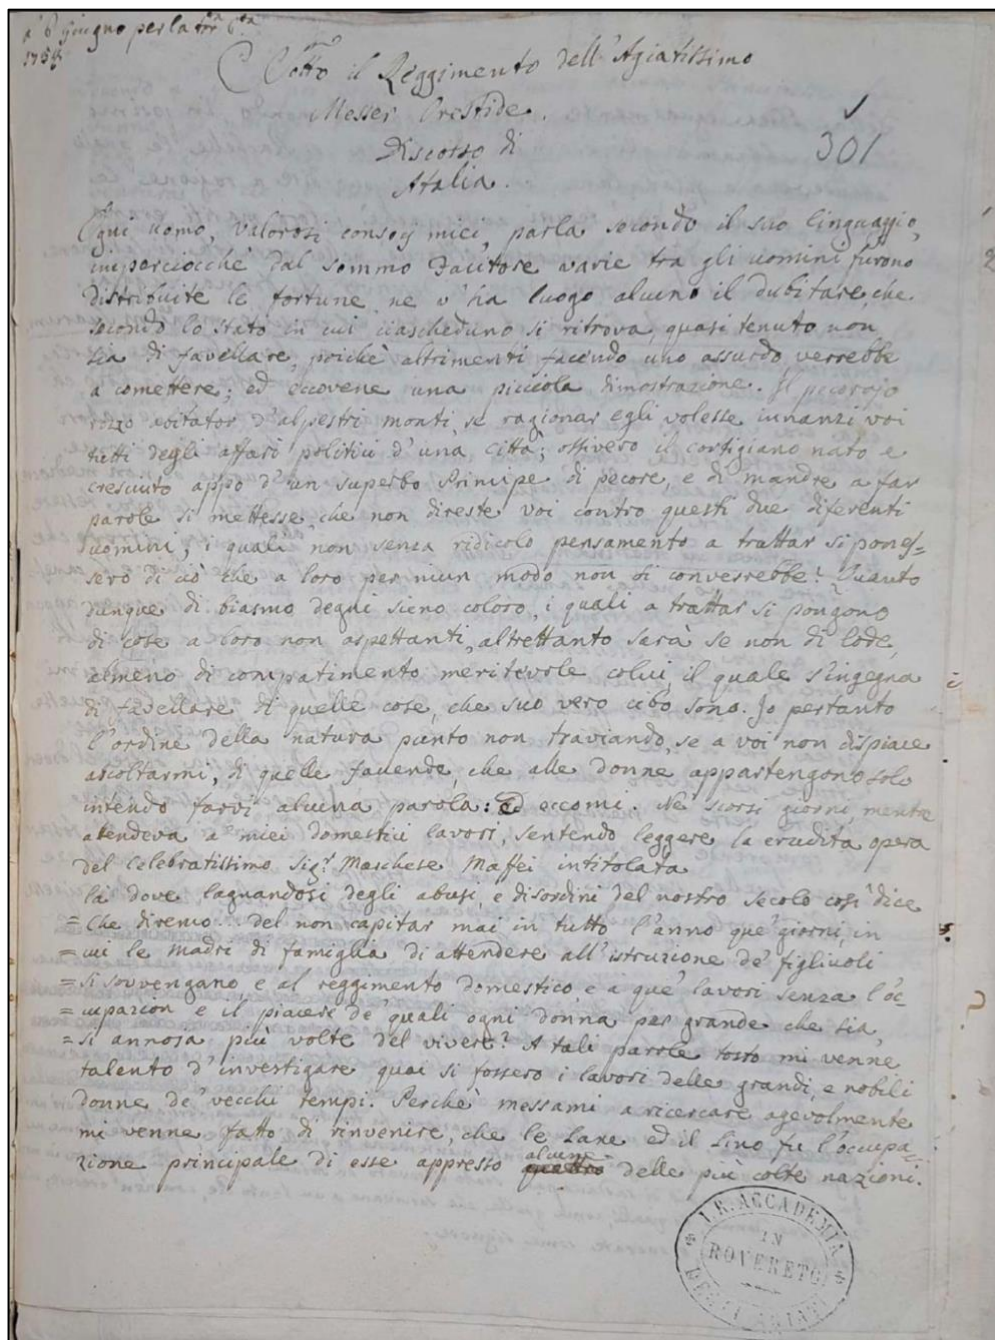 a' 6 Giugno per la 6ta
175
Sotto il Reggimento dell'Agiatissimo
Messer Crestide.
Discorso di
Atalia.
301
Ogni uomo, valorosi consocj miei, parla secondo il suo linguaggio,
imperciocchè dal sommo Facitore varie tra gli uomini furono
distribuite le fortune, ne v'ha luogo alcuno il dubitare, che
secondo lo stato in cui ciascheduno si ritrova, quasi tenuto non
sia di favellare, poichè altrimenti facendo uno assurdo verrebbe
a comettere; ed eccovene una picciola dimostrazione. Il pecorajo
rozzo abitator d'alpestri monti, se ragionar egli volesse innanzi voi
tutti degli affari politici d'una Città; ossivero il cortigiano nato e
cresciuto appo d'un superbo Principe di pecore, e di mandre a far
parole si mettesse, che non direste voi contro questi due diferenti
uomini, i quali non senza ridicolo pensamento a trattar si pones=
sero di ciò che a loro per niun modo non si converrebbe? Quanto
dunque di biasmo degni sieno coloro, i quali a trattar si pongono
di cose a loro non aspettanti, altrettanto sarà se non di lode,
almeno di compatimento meritevole colui, il quale s'ingegna
di favellare di quelle cose, che suo vero cibo sono. Io pertanto
l'ordine della natura punto non traviando, se a voi non dispiace
ascoltarmi, di quelle facende, che alle donne appartengono solo
intendo farvi alcuna parola: ed eccomi. Ne' scorsi giorni, mentre
atendeva a' miei domestici lavori, sentendo leggere la erudita opera
del Celebratissimo Sigr. Marchese Maffei intitolata
là dove lagnandosi degli abusi, e disordini del nostro secolo così dice
= Che diremo del non capitar mai in tutto l'anno que' giorni, in
= cui le Madri di famiglia di attendere all'istruzione de' figliuoli
= si sovvengano e al reggimento domestico, e a que' lavori senza l'oc=
= cupazion e il piacere de' quali ogni donna per grande che sia,
= si annoja più volte del vivere? A tali parole tosto mi venne
talento d'investigare quai si fossero i lavori delle grandi, e nobili
donne de' vecchi tempi. Perchè messami a ricercare agevolmente
mi venne fatto di rinvenire, che le Lane ed il Lino fu l'occupa=
zione principale di esse appresso alcune delle più colte nazioni.
I. R. ACCADEMIA
IN
ROVERETO
DEGLI AGIATI